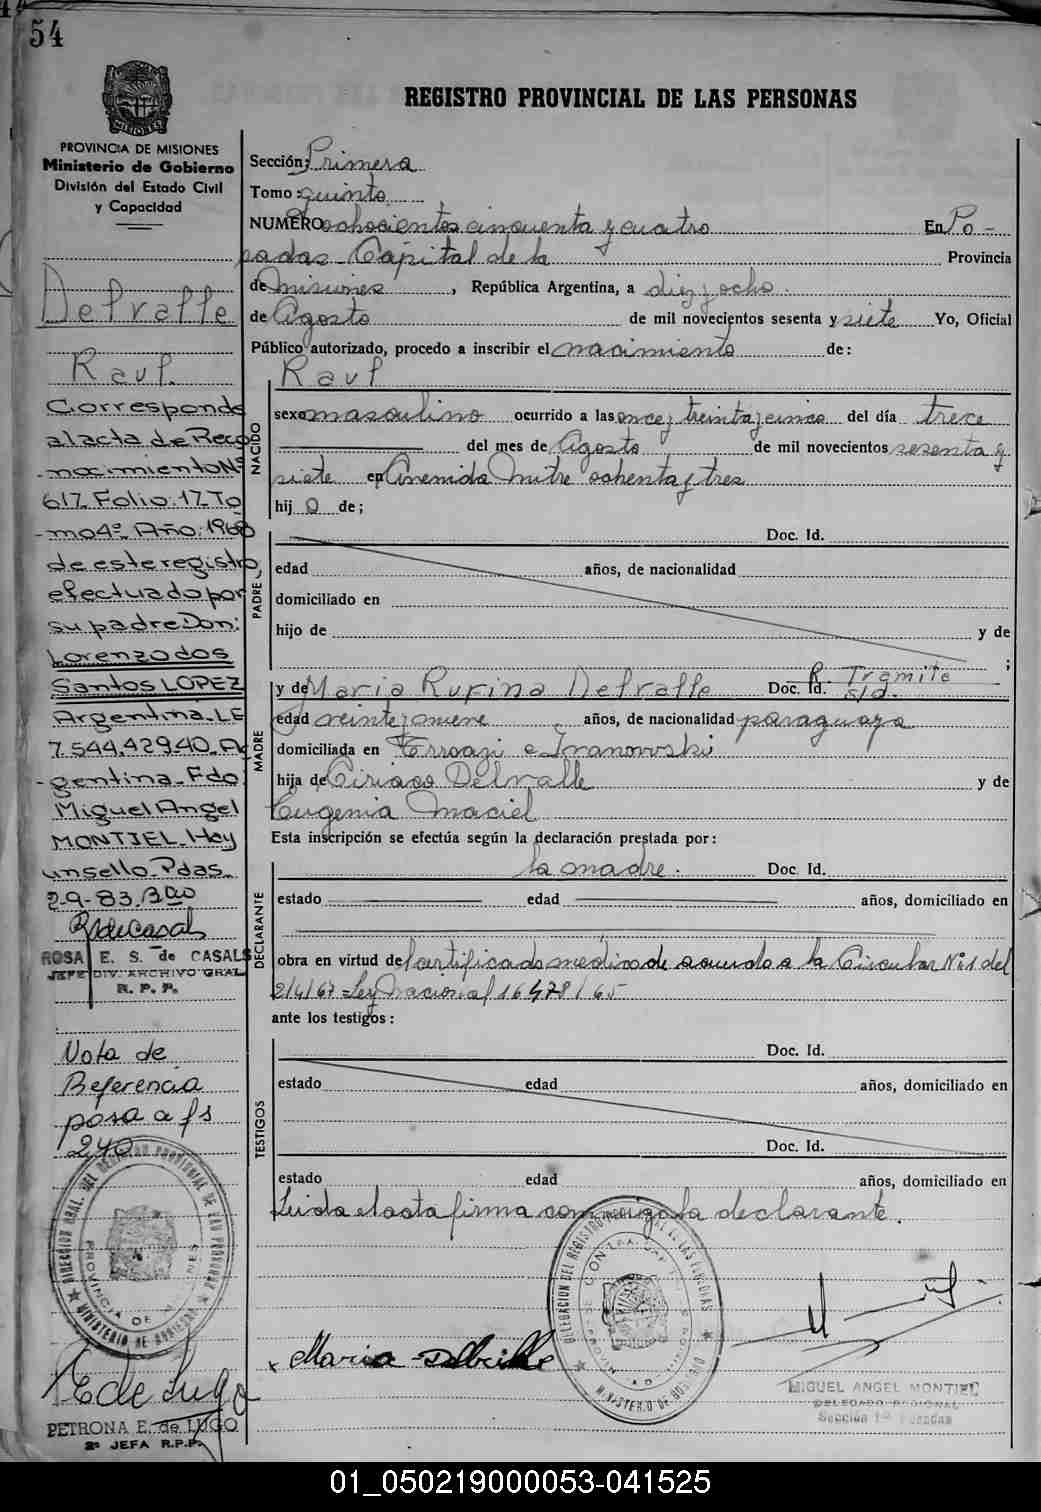 54
MISIONES
PROVINCIA DE MISIONES
Ministerio de Gobierno
División del Estado Civil
y Capacidad
Delvalle
Raul.
Corresponde
al acta de Reco
-nocimiento Nº
617 Folio:17 To
-mo 4º Año:1968
de este registro
efectuado por
su padre Don:
Lorenzo dos
Santos LOPEZ
Argentina-LE
7.544.429.40. Ar
-gentina-Fdo:
Miguel Angel
MONTIEL-Hay
un sello-Pdas.
2-9-83.
RdeCasals
ROSA E. S. de CASALS
JEFE DIV. ARCHIVO GRAL
R. P. P.
Nota de
Referencia
pasa a fs
240
DIRECCION GRAL. DEL REGISTRO PROVINCIAL DE LAS PERSONAS
PROVINCIA DE MISIONES
MINISTERIO DE GOBIERNO
E de Lugo
PETRONA E. de LUGO
2ª JEFA R.P.P.
REGISTRO PROVINCIAL DE LAS PERSONAS
Sección: Primera
Tomo: quinto
NUMERO ochocientos cincuenta y cuatro En Po-
sadas-Capital de la Provincia
de Misiones, República Argentina, a diez y ocho.
de Agosto de mil novecientos sesenta y siete Yo, Oficial
Público autorizado, procedo a inscribir el nacimiento de:
Raul
NACIDO
sexo masculino ocurrido a las once y treinta y cinco del día trece
del mes de Agosto de mil novecientos sesenta y
siete en Avenida Mitre ochenta y tres
hijo de;
PADRE
Doc. Id.
edad años, de nacionalidad
domiciliado en
hijo de y de
;
MADRE
y de Maria Rufina Delvalle Doc. Id. R. Tramite
s/d.
edad veinte y nueve años, de nacionalidad paraguaya
domiciliada en e Ivanovski
hija de Ciriaco Delvalle y de
Eugenia Maciel
Esta inscripción se efectúa según la declaración prestada por:
DECLARANTE
la madre. Doc. Id.
estado edad años, domiciliado en
obra en virtud de certificado medico de acuerdo a la Circular Nº1 del
2/4/67-Ley Nacional 16478/65
ante los testigos:
TESTIGOS
Doc. Id.
estado edad años, domiciliado en
Doc. Id.
estado edad años, domiciliado en
Leida el acta firma conmigo la declarante.
DELEGACION DEL REGISTRO PROVINCIAL DE LAS PERSONAS
MINISTERIO DE GOBIERNO
Maria Delvalle
MIGUEL ANGEL MONTIEL
DELEGADO REGIONAL
Sección 1ª Posadas
01_050219000053-041525